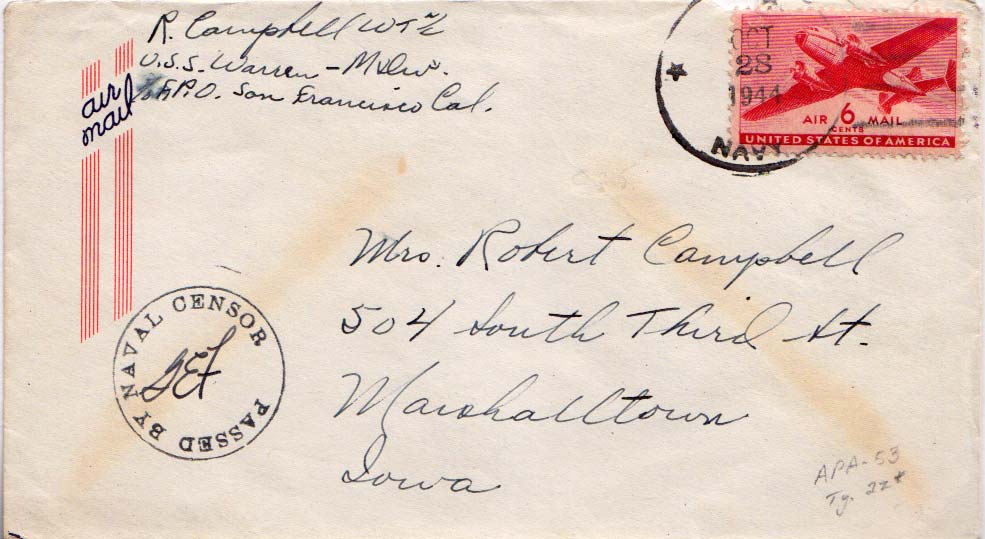 R. Campbell WT 2/c
U.S.S. Warren - M Div.
℅ F.P.O. San Francisco Cal.
air
mail
OCT
28
1944
NAVY
AIR 6 MAIL
CENTS
UNITED STATES OF AMERICA
Mrs. Robert Campbell
504 South Third St.
Marshalltown
Iowa
PASSED BY NAVAL CENSOR
APA-53
Ty.